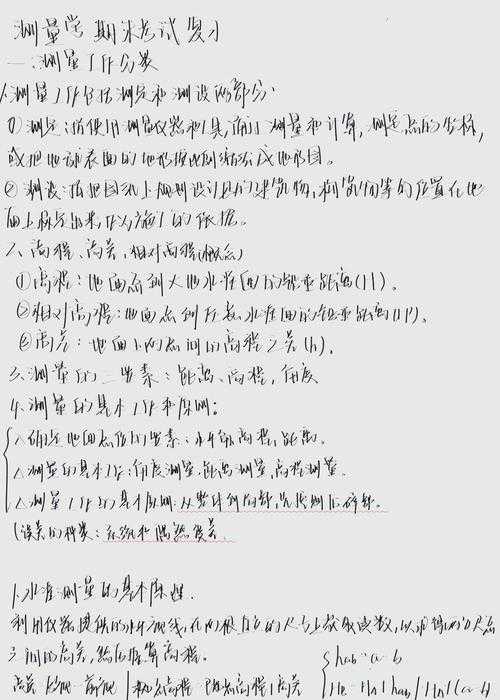 测量学期末考试复习
一.测量工作分类
1.测量工作包括测定和测设两部分.
①测定:指使用测量仪器和工具,通过测量和计算,测定点的坐标,
或把地球表面的地形按比例缩绘成地形图。
②测设:指把图纸上规划设计好的建筑物,构筑物等的位置在地
面上标定出来,作为施工的依据。
2、高程、高差、相对高程(概念)
①高程:地面点到大地水准面的铅垂距离(H)。
②相对高程:地面点到任意水准面的铅垂距离(H')。
③高差:地面上两点间的高程之差(h).
3.测量的三要素:距离、高程、角度
4.测量的基本工作和原则:
△确定地面点位的要素:水平角,高程,距离。
△测量的基本工作:角度测量,距离测量,高程测量。
△测量工作的基本原则:从整体到局部,先控制后碎部。
误差的种类:系统和偶然误差.
1.水准测量的基本原理.
利用仪器提供的水平视线,在两根直立的尺上获取读数,以求得两立尺点
之间的高差,然后推算高程。
hab=a-b
高差 后视-前视